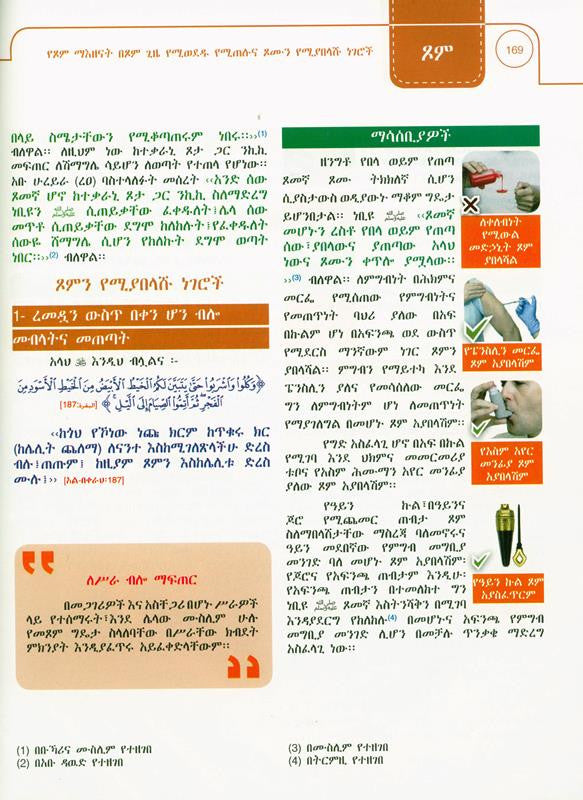 የጾም ማእዘናት በጾም ጊዜ የሚወደዱ የሚጠሉና ጾሙን የሚያበላሹ ነገሮች
ጾም
169
በላይ ስሜታቸውን የሚቆጣጠሩም ነበሩ።››(1)
ብለዋል። ለዚህም ነው ከተቃራኒ ጾታ ጋር ንኪኪ
መፍጠር ለሽማግሌ ሳይሆን ለወጣት የተጠላ የሆነው።
አቡ ሁረይራ (ረዐ) ባስተላለፉት መሰረት ‹‹አንድ ሰው
ጾመኛ ሆኖ ከተቃራኒ ጾታ ጋር ንኪኪ ስለማድረግ
ነቢዩን ﷺ ሲጠይቃቸው ፈቀዱለት፤ሌላ ሰው
መጥቶ ሲጠይቃቸው ደግሞ ከለከሉት፤የፈቀዱለት
ሰውዬ ሽማግሌ ሲሆን የከለከት ደግሞ ወጣት
ነበር።››(2) ብለዋል።
ጾምን የሚያበላሹ ነገሮች
1- ረመዷን ውስጥ በቀን ሆን ብሎ
መብላትና መጠጣት
አላህ ﷻ እንዲህ ብሏልና ፡-
﴿وَكُلُوا وَاشْرَبُوا حَتَّىٰ يَتَبَيَّنَ لَكُمُ الْخَيْطُ الْأَبْيَضُ مِنَ الْخَيْطِ الْأَسْوَدِ مِنَ
الْفَجْرِ ثُمَّ أَتِمُّوا الصِّيَامَ إِلَى اللَّيْلِ ﴾ [البقرة:187]
‹‹ከጎህ የኾነው ነጩ ክርም ከጥቁሩ ክር
(ከሌሊት ጨለማ) ለናንተ እስከሚገለጽላችሁ ድረስ
ብሉ፤ጠጡም፤ ከዚያም ጾምን እስከሌሊቱ ድረስ
ሙሉ፤›› [አል-ብቀራህ:187]
ለሥራ ብሎ ማፍጠር
በመጋገሪዎች እና አስቸጋሪ በሆኑ ሥራዎች
ላይ የተሰማሩት፣እንደ ሌላው ሙስሊም ሁሉ
የመጾም ግዴታ ስላለባቸው በሥራቸው ክብደት
ምክንያት እንዲያፈጥሩ አይፈቀድላቸውም።
ማሳሰቢያዎች
ዘንግቶ የበላ ወይም የጠጣ
ጾመኛ ጾሙ ትክክለኛ ሲሆን
ሲያስታውስ ወዲያውኑ ማቆም ግዴታ
ይሆንበታል። ነቢዩ ﷺ ‹‹ጾመኛ
መሆኑን ረስቶ የበላ ወይም የጠጣ
ሰው፣ያበላውና ያጠጣው አላህ
ነውና ጾሙን ቀጥሎ ያሟላው።
››(3) ብለዋል። ለምግብነት በሕክምና
መርፌ የሚሰጠው የምግብነትና
የመጠጥነት ባህሪ ያለው በአፍ
በኩልም ሆነ በአፍንጫ ወደ ውስጥ
የሚደርስ ማንኛውም ነገር ጾምን
ያበላሻል። ምግብን የማይተካ እንደ
ፔንስሊን ያለና የመሳሰለው መርፌ
ግን ለምግብነትም ሆነ ለመጠጥነት
የማያገለግል በመሆኑ ጾም አያበላሽም።
የግድ አስፈላጊ ሆኖ በአፍ በኩል
የሚገባ እንደ ህክምና መመርመሪያ
ቱቦና የአስም ሕሙማን አየር መንፊያ
ያለው ጾም አያበላሽም።
የዓይን ኩል፣በዓይንና
ጆሮ የሚጨመር ጠብታ ጾም
ስለማበላሸታቸው ማስረጃ ባለመኖሩና
ዓይን መደበኛው የምግብ መግቢያ
መንገድ ባለ መሆኑ ጾም አያበላሽም፡
የጆሮና የአፍንጫ ጠብታም እንዲሁ፡
የአፍንጫ ጠብታን በተመለከተ ግን
ነቢዩ ﷺ ጾመኛ አስትንሻቅን በሚገባ
እንዳያደርግ የከለከሉ(4) በመሆኑና አፍንጫ የምግብ
መግቢያ መንገድ ሊሆን በመቻሉ ጥንቃቄ ማድረግ
አስፈላጊ ነው።
ለቀለብነት
የሚውል
መድኃኒት ጾም
ያበላሻል
የፔንስሊን መርፌ
ጾም አያበላሽም
የአስም አየር
መንፊያ ጾም
አያበላሽም
የዓይን ኩል ጾም
አያስፈጥርም
(1) በቡኻሪና ሙስሊም የተዘገበ
(2) በአቡ ዳዉድ የተዘገበ
(3) በሙስሊም የተዘገበ
(4) በትርምዚ የተዘገበ